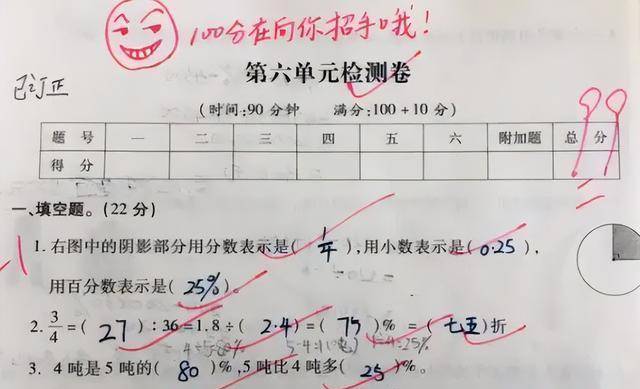 100分在向你招手哦!
第六单元检测卷
已订正
(时间:90分钟 满分:100+10分)
题号 一 二 三 四 五 六 附加题 总分
得分
99
一、填空题。(22分)
1. 右图中的阴影部分用分数表示是( 1/4 ),用小数表示是( 0.25 ),
用百分数表示是( 25% )。
2. 3/4=( 27 ):36=1.8÷( 2.4 )=( 75 )%=( 七五 )折
4÷5=80% 1÷4=25%
3. 4吨是5吨的( 80 )%,5吨比4吨多( 25 )%。